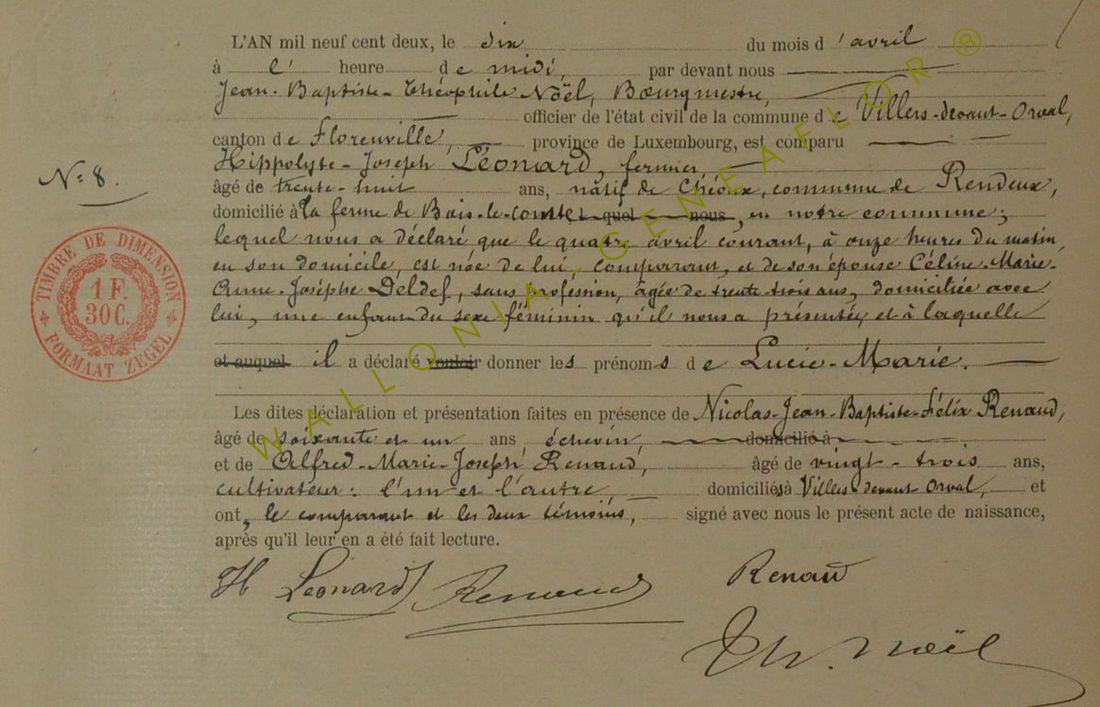 L'AN mil neuf cent deux, le dix du mois d'avril
à l' heure de midi, par devant nous
Jean-Baptiste-Théophile Noël, Bourgmestre,
officier de l'état civil de la commune de Villers-devant-Orval,
canton de Florenville, province de Luxembourg, est comparu
Hippolyte-Joseph Léonard, fermier,
N° 8.
âgé de trente-huit ans, natif de Chéoux, commune de Rendeux,
domicilié à la ferme de Bois-le-comte, lequel nous, en notre commune;
lequel nous a déclaré que le quatre avril courant, à onze heures du matin,
en son domicile, est née de lui, comparant, et de son épouse Céline-Marie-
Anne-Josèphe Deldef, sans profession, âgée de trente trois ans, domiciliée avec
lui, une enfant du sexe féminin qu'il nous a présentée, et à laquelle
et auquel il a déclaré vouloir donner les prénoms de Lucie-Marie.
Les dites déclaration et présentation faites en présence de Nicolas-Jean-Baptiste-Félix Renaud,
âgé de soixante et un ans échevin, domicilié à
et de Alfred-Marie-Joseph Renaud, âgé de vingt-trois ans,
cultivateur: l'un et l'autre, domiciliés à Villers-devant-Orval, et
ont, le comparant et les deux témoins, signé avec nous le présent acte de naissance,
après qu'il leur en a été fait lecture.
H Leonard Renaud Renaud
Th. Noël
TIMBRE DE DIMENSION
1 F.
30 C.
FORMAAT ZEGEL
WALLONIA GENEAFLOR ®